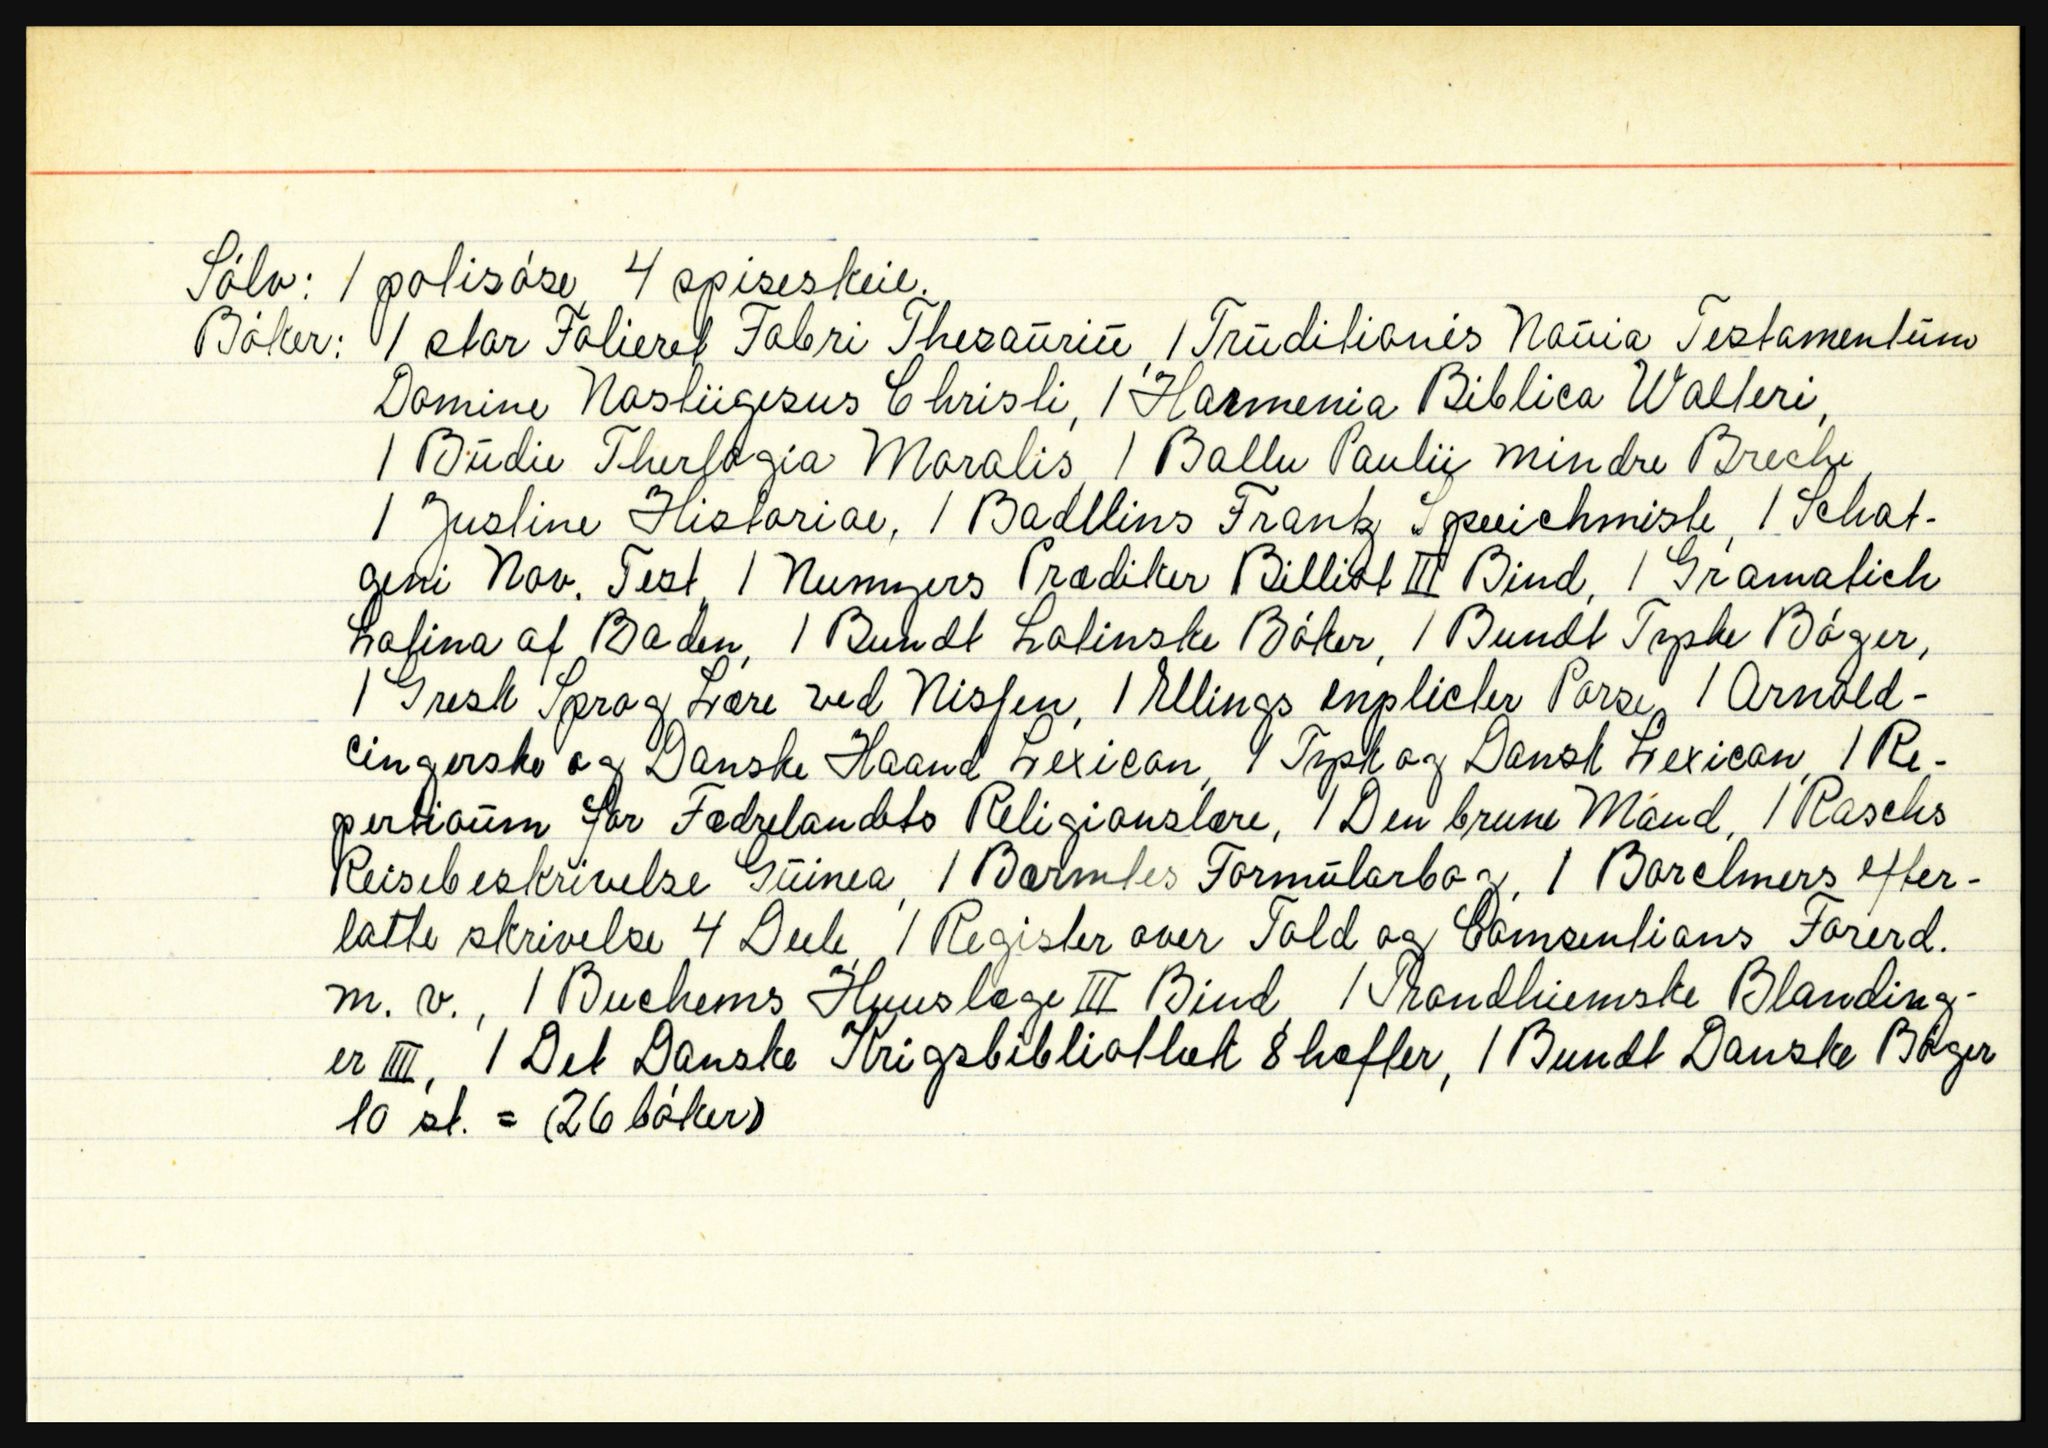 Sölv: 1 polisöse, 4 spiseskeie.
Böker: 1 stor Folieret Fabri Thesaüriü, 1 Trüditionés Noüia Testamentüm
Domine Nostiigesus Christi, 1 Harmenia Biblica Walteri,
1 Büdie Therlogia Moralis, 1 Ballu Paulii mindre Breche,
1 Justine Historiae, 1 Badllins Frantz Speeichmiste, 1 Schat-
geni Nov. Test, 1 Numyers Prædiker Billiot III Bind, 1 Gramatich
Latina af Baden, 1 Bundt Latinske Böker, 1 Bundt Tyske Böger,
1 Gresk Sprog Lære ved Nissen, 1 Ellings enplicter Parse, 1 Arnold-
cingerske og Danske Haand Lexicon, 1 Tysk og Dansk Lexicon, 1 Re-
pertioüm for Fædrelandets Religionslære, 1 Den brune Mand, 1 Raschs
Reisebeskrivelse Güinea, 1 Bærmtes Formülarbog, 1 Barclmers efter-
latte skrivelse 4 Deele, 1 Register over Told og Comsentions Forerd.
m. v., 1 Buchems Huuslæge III Bind, 1 Trondhiemske Blanding-
er III, 1 Det Danske Krigsbibliothek 8 hæfter, 1 Bundt Danske Böger
10 st. = (26 böker)